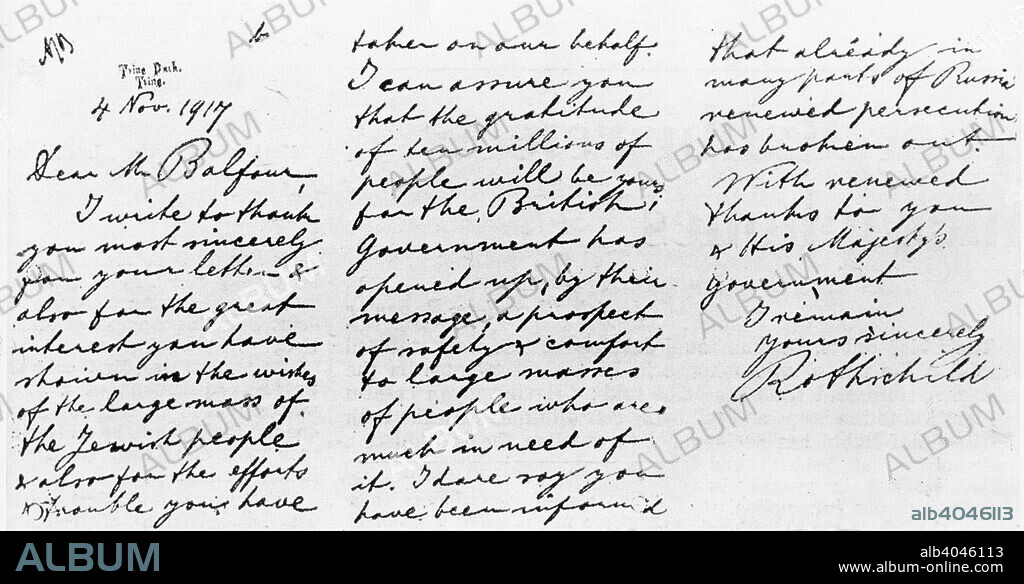 Tring Park,
Tring.
4 Nov. 1917
Dear Mr Balfour,
I write to thank
you most sincerely
for your letter &
also for the great
interest you have
shown in the wishes
of the large mass of
the Jewish people
& also for the efforts
& trouble you have
taken on our behalf.
I can assure you
that the gratitude
of ten millions of
people will be yours
for the British
Government has
opened up, by their
message, a prospect
of safety & comfort
to large masses
of people who are
much in need of
it. I dare say you
have been informed
that already in
many parts of Russia
renewed persecution
has broken out.
With renewed
thanks to you
& His Majesty's
Government
I remain
Yours sincerely
Rothschild
alb4046113
ALBUM
alb4046113
www.album-online.com